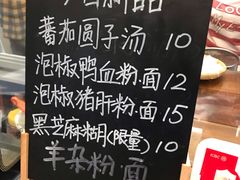 番茄圆子汤 10
泡椒鸭血粉.面12
泡椒猪肝粉.面15
黑芝麻糊(限量)10
羊杂粉 面